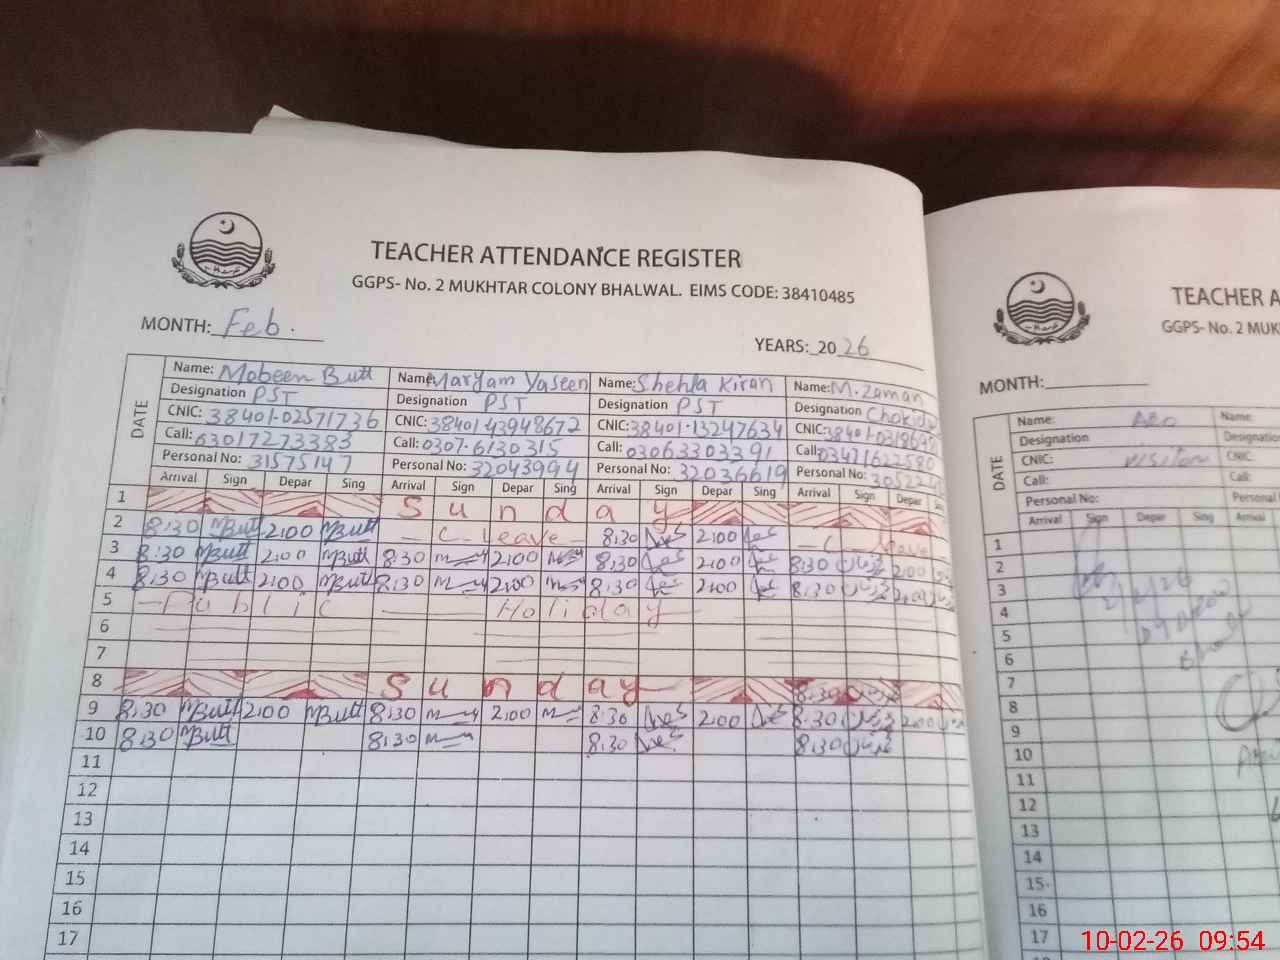 TEACHER ATTENDANCE REGISTER
GGPS- No. 2 MUKHTAR COLONY BHALWAL. EIMS CODE: 38410485
MONTH: Feb.
YEARS: 2026
DATE
Name: Mobeen Butt Name: Maryam Yaseen Name: Shehla Kiran Name: M. Zaman
Designation PST Designation PST Designation PST Designation
CNIC: 38401-02571736 CNIC: 38401-43948672 CNIC: 38401-13247634 CNIC:
Call: 03017273383 Call: 0307-6130315 Call: 03063303391 Call:
Personal No: 31575147 Personal No: 32043994 Personal No: 32036619 Personal No:
Arrival Sign Depar Sing Arrival Sign Depar Sing Arrival Sign Depar Sing Arrival Sign Depar
1 Sunday
2 8:30 MButt 2:00 MButt C-leave 8:30 2:00 C leave
3 8:30 MButt 2:00 MButt 8:30 2:00 8:30 2:00 8:30 2:00
4 8:30 MButt 2:00 MButt 8:30 2:00 8:30 2:00 8:30 2:00
5 Public Holiday
6
7
8 Sunday 8:30
9 8:30 MButt 2:00 MButt 8:30 2:00 8:30 2:00 8:30 2:00
10 8:30 MButt 8:30 8:30 8:30
11
12
13
14
15
16
17
TEACHER A
GGPS- No. 2 MUK
MONTH:
DATE
Name: Name:
Designation
CNIC: visitor CNIC:
Call: Call:
Personal No: Personal
Arrival Sign Depar Sing Arrival
1
2
3
4
5
6
7
8
9
10
11
12
13
14
15
16
17
10-02-26 09:54